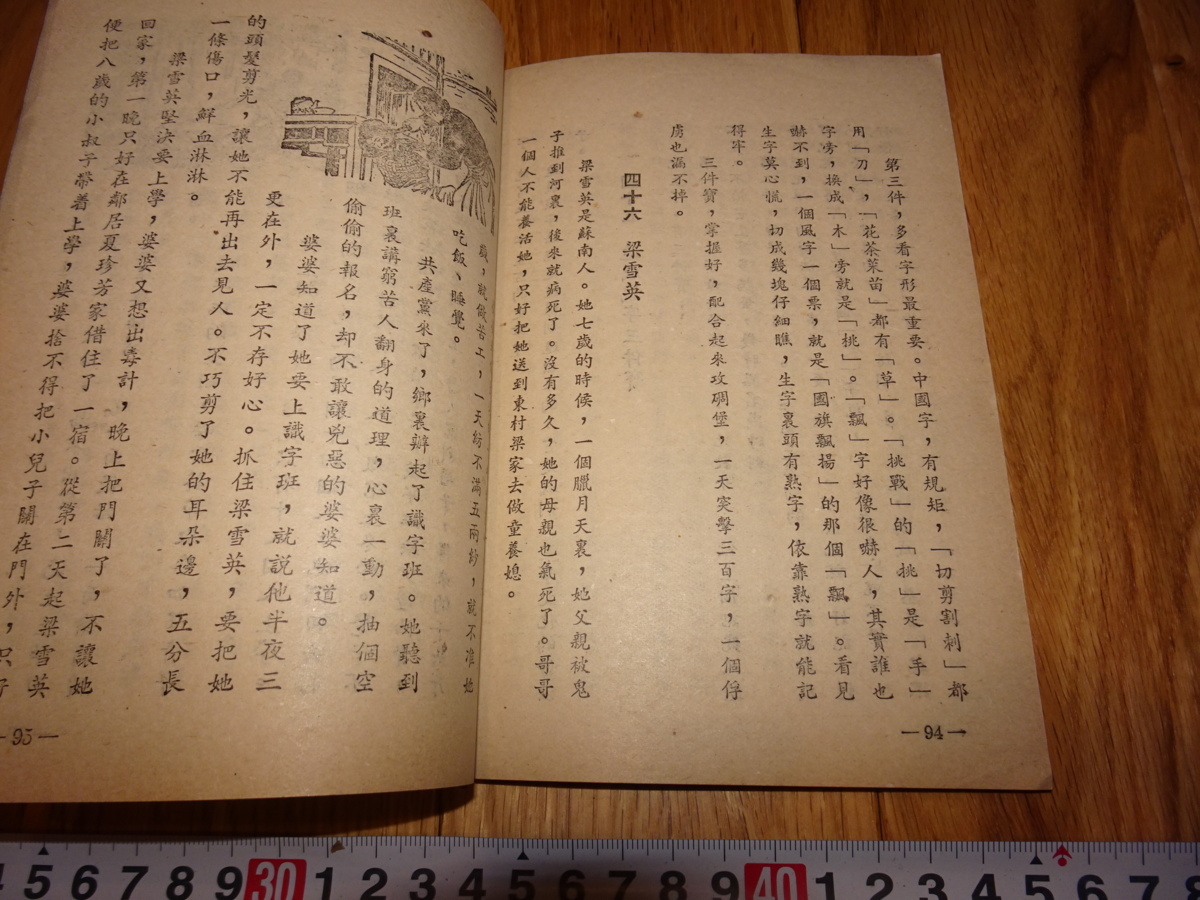 第三件，多看字形最重要。中國字，有規矩，「切剪割刺」都
用「刀」，「花茶菜苗」都有「草」。「挑戰」的「挑」是「手」
字旁，換成「木」旁就是「桃」。「飄」字好像很嚇人，其實誰也
嚇不到，一個風字一個票，就是「國旗飄揚」的那個「飄」。看見
生字莫心慌，切成幾塊仔細瞧，生字裏頭有熟字，依靠熟字就能記
得牢。
三件寶，掌握好，配合起來攻碉堡，一天突擊三百字，一個俘
虜也漏不掉。
四十六 梁雪英
梁雪英是蘇南人。她七歲的時候，一個臘月天裏，她父親被鬼
子推到河裏，後來就病死了。沒有多久，她的母親也氣死了。哥哥
一個人不能養活她，只好把她送到東村梁家去做童養媳。
—94—
就做苦工，一天紡不滿五兩紗，就不准她
吃飯、睡覺。
共產黨來了，鄉裏辦起了識字班。她聽到
班裏講窮苦人翻身的道理，心裏一動，抽個空
偷偷的報名，却不敢讓兇惡的婆婆知道。
婆婆知道了她要上識字班，就說他半夜三
更在外，一定不存好心。抓住梁雪英，要把她
的頭髮剪光，讓她不能再出去見人。不巧剪了她的耳朵邊，五分長
一條傷口，鮮血淋淋。
梁雪英堅決要上學，婆婆又想出毒計，晚上把門關了，不讓她
回家，第一晚只好在鄰居夏珍芳家借住了一宿。從第二天起梁雪英
便把八歲的小叔子帶着上學，婆婆捨不得把小兒子關在門外，只好
—95—
5 6 7 8 9 30 1 2 3 4 5 6 7 8 9 40 1 2 3 4 5 6 7 8